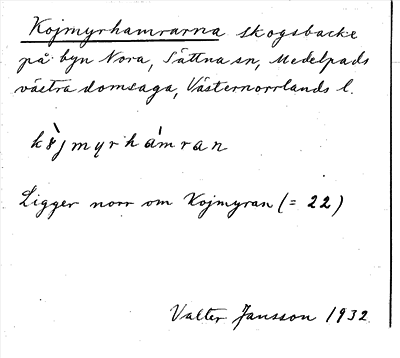 Kojmyrhamrarna skogsbacke
på byn Nora, Sättna sn, Medelpads
västra domsaga, Västernorrlands l.
Ligger norr om Kojmyran (= 22)
Valter Jansson 1932